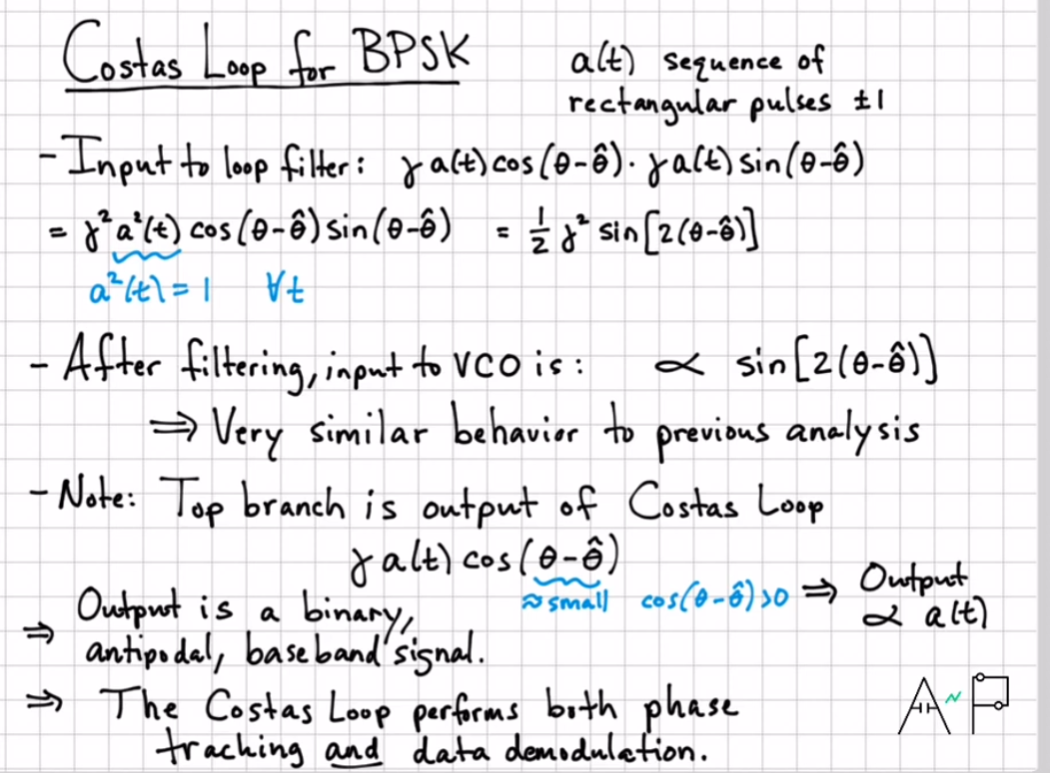 Costas Loop for BPSK
a(t) sequence of
rectangular pulses ±1
- Input to loop filter: γ a(t) cos(θ-θ̂) · γ a(t) sin(θ-θ̂)
= γ² a²(t) cos(θ-θ̂) sin(θ-θ̂) = 1/2 γ² sin[2(θ-θ̂)]
a²(t) = 1 ∀t
- After filtering, input to VCO is: ∝ sin[2(θ-θ̂)]
⇒ Very similar behavior to previous analysis
- Note: Top branch is output of Costas Loop
γ a(t) cos(θ-θ̂)
≈ small cos(θ-θ̂)>0 ⇒ Output
∝ a(t)
⇒ Output is a binary,
antipodal, baseband signal.
⇒ The Costas Loop performs both phase
tracking and data demodulation.
A P